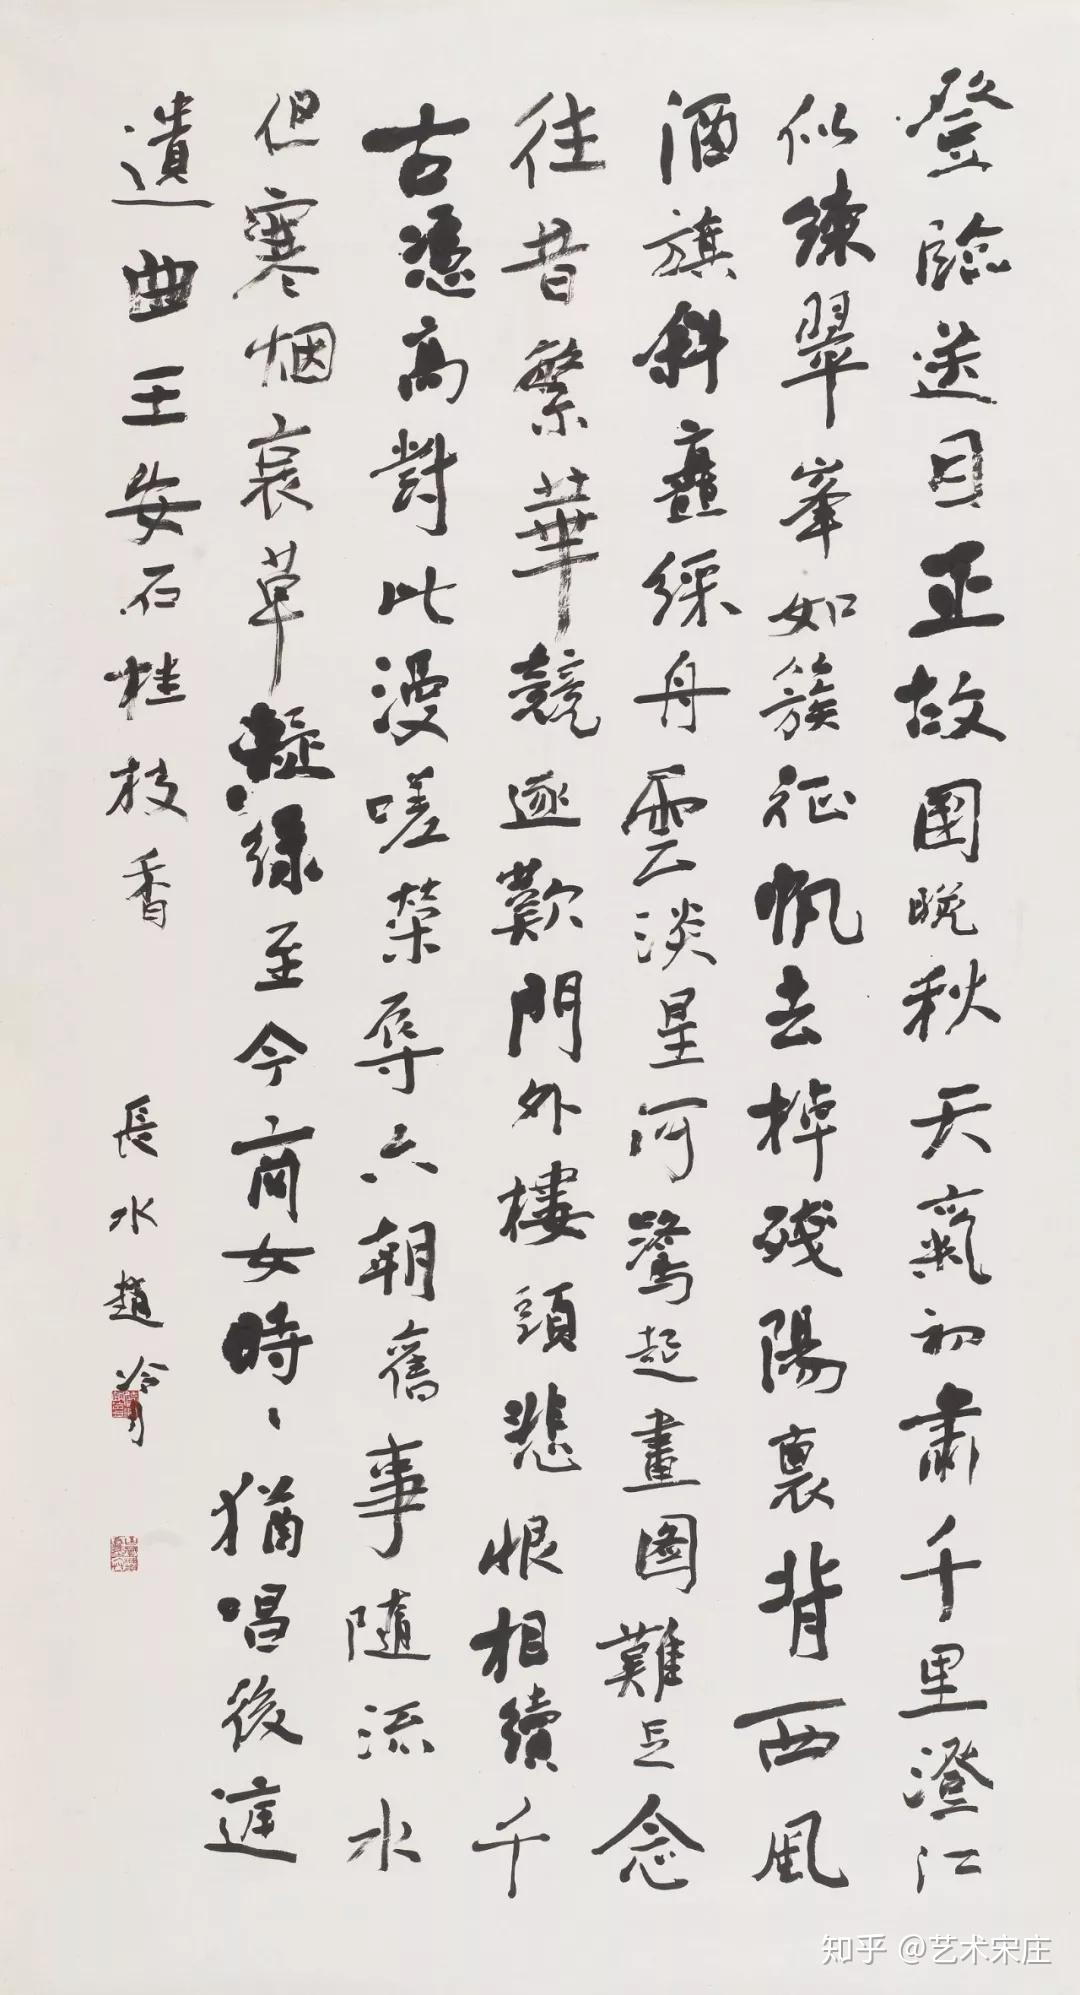 登臨送目正故國晚秋天氣初肅千里澄江
似練翠峯如簇征帆去棹殘陽裏背西風
酒旗斜矗綵舟雲淡星河鷺起畫圖難足念
往昔繁華競逐歎門外樓頭悲恨相續千
古憑高對此漫嗟榮辱六朝舊事隨流水
但寒烟衰草凝綠至今商女時〻猶唱後庭
遺曲王安石桂枝香
長水趙冷月
知乎 @艺术宋庄